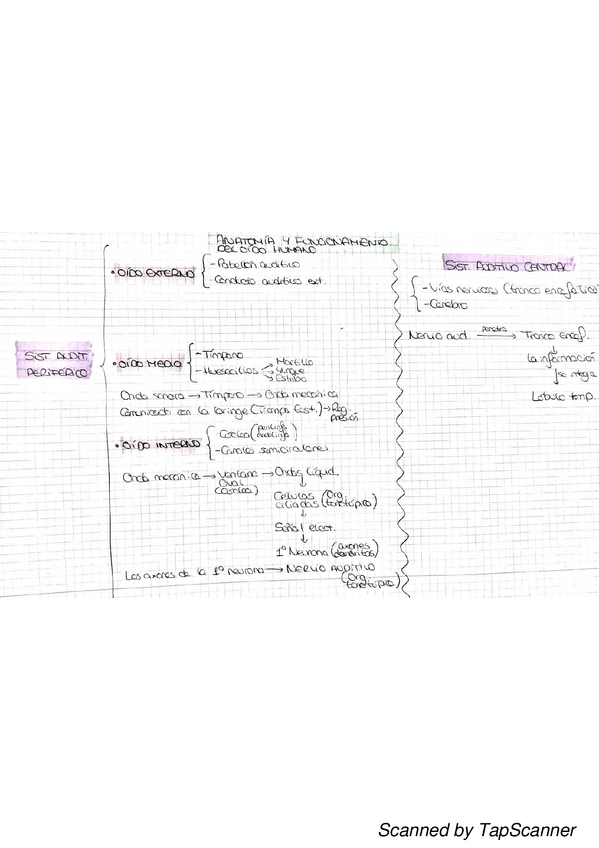 ANATOMÍA Y FUNCIONAMIENTO
DEL OÍDO HUMANO
SIST. AUDIT.
PERIFERICO
• OÍDO EXTERNO
- Pabellón auditivo
- Conducto auditivo ext.
• OÍDO MEDIO
- Tímpano
- Huesecillos
Martillo
Yunque
Estribo
Onda sonora → Tímpano → Onda mecánica
Comunicado con la laringe (Trompa Eust.) → Reg.
presión
• OÍDO INTERNO
- Cóclea (perilinfa
endolinfa)
- Canales semicirculares
Onda mecánica → Ventana → Ondas líquid.
Oval
(cóclea)
↓
Células (Org.
ciliadas tonotópico)
↓
Señal elect.
↓
1ª Neurona (axones
dendritas)
Los axones de la 1ª neurona → NERVIO AUDITIVO
(Org.
tonotópico)
SIST. AUDITIVO CENTRAL
- Vías nerviosas (tronco encefálico
- Cerebro
Nervio aud. penetra → Tronco Encef.
↓
la información
↓ se integra
Lóbulo temp.
Scanned by TapScanner